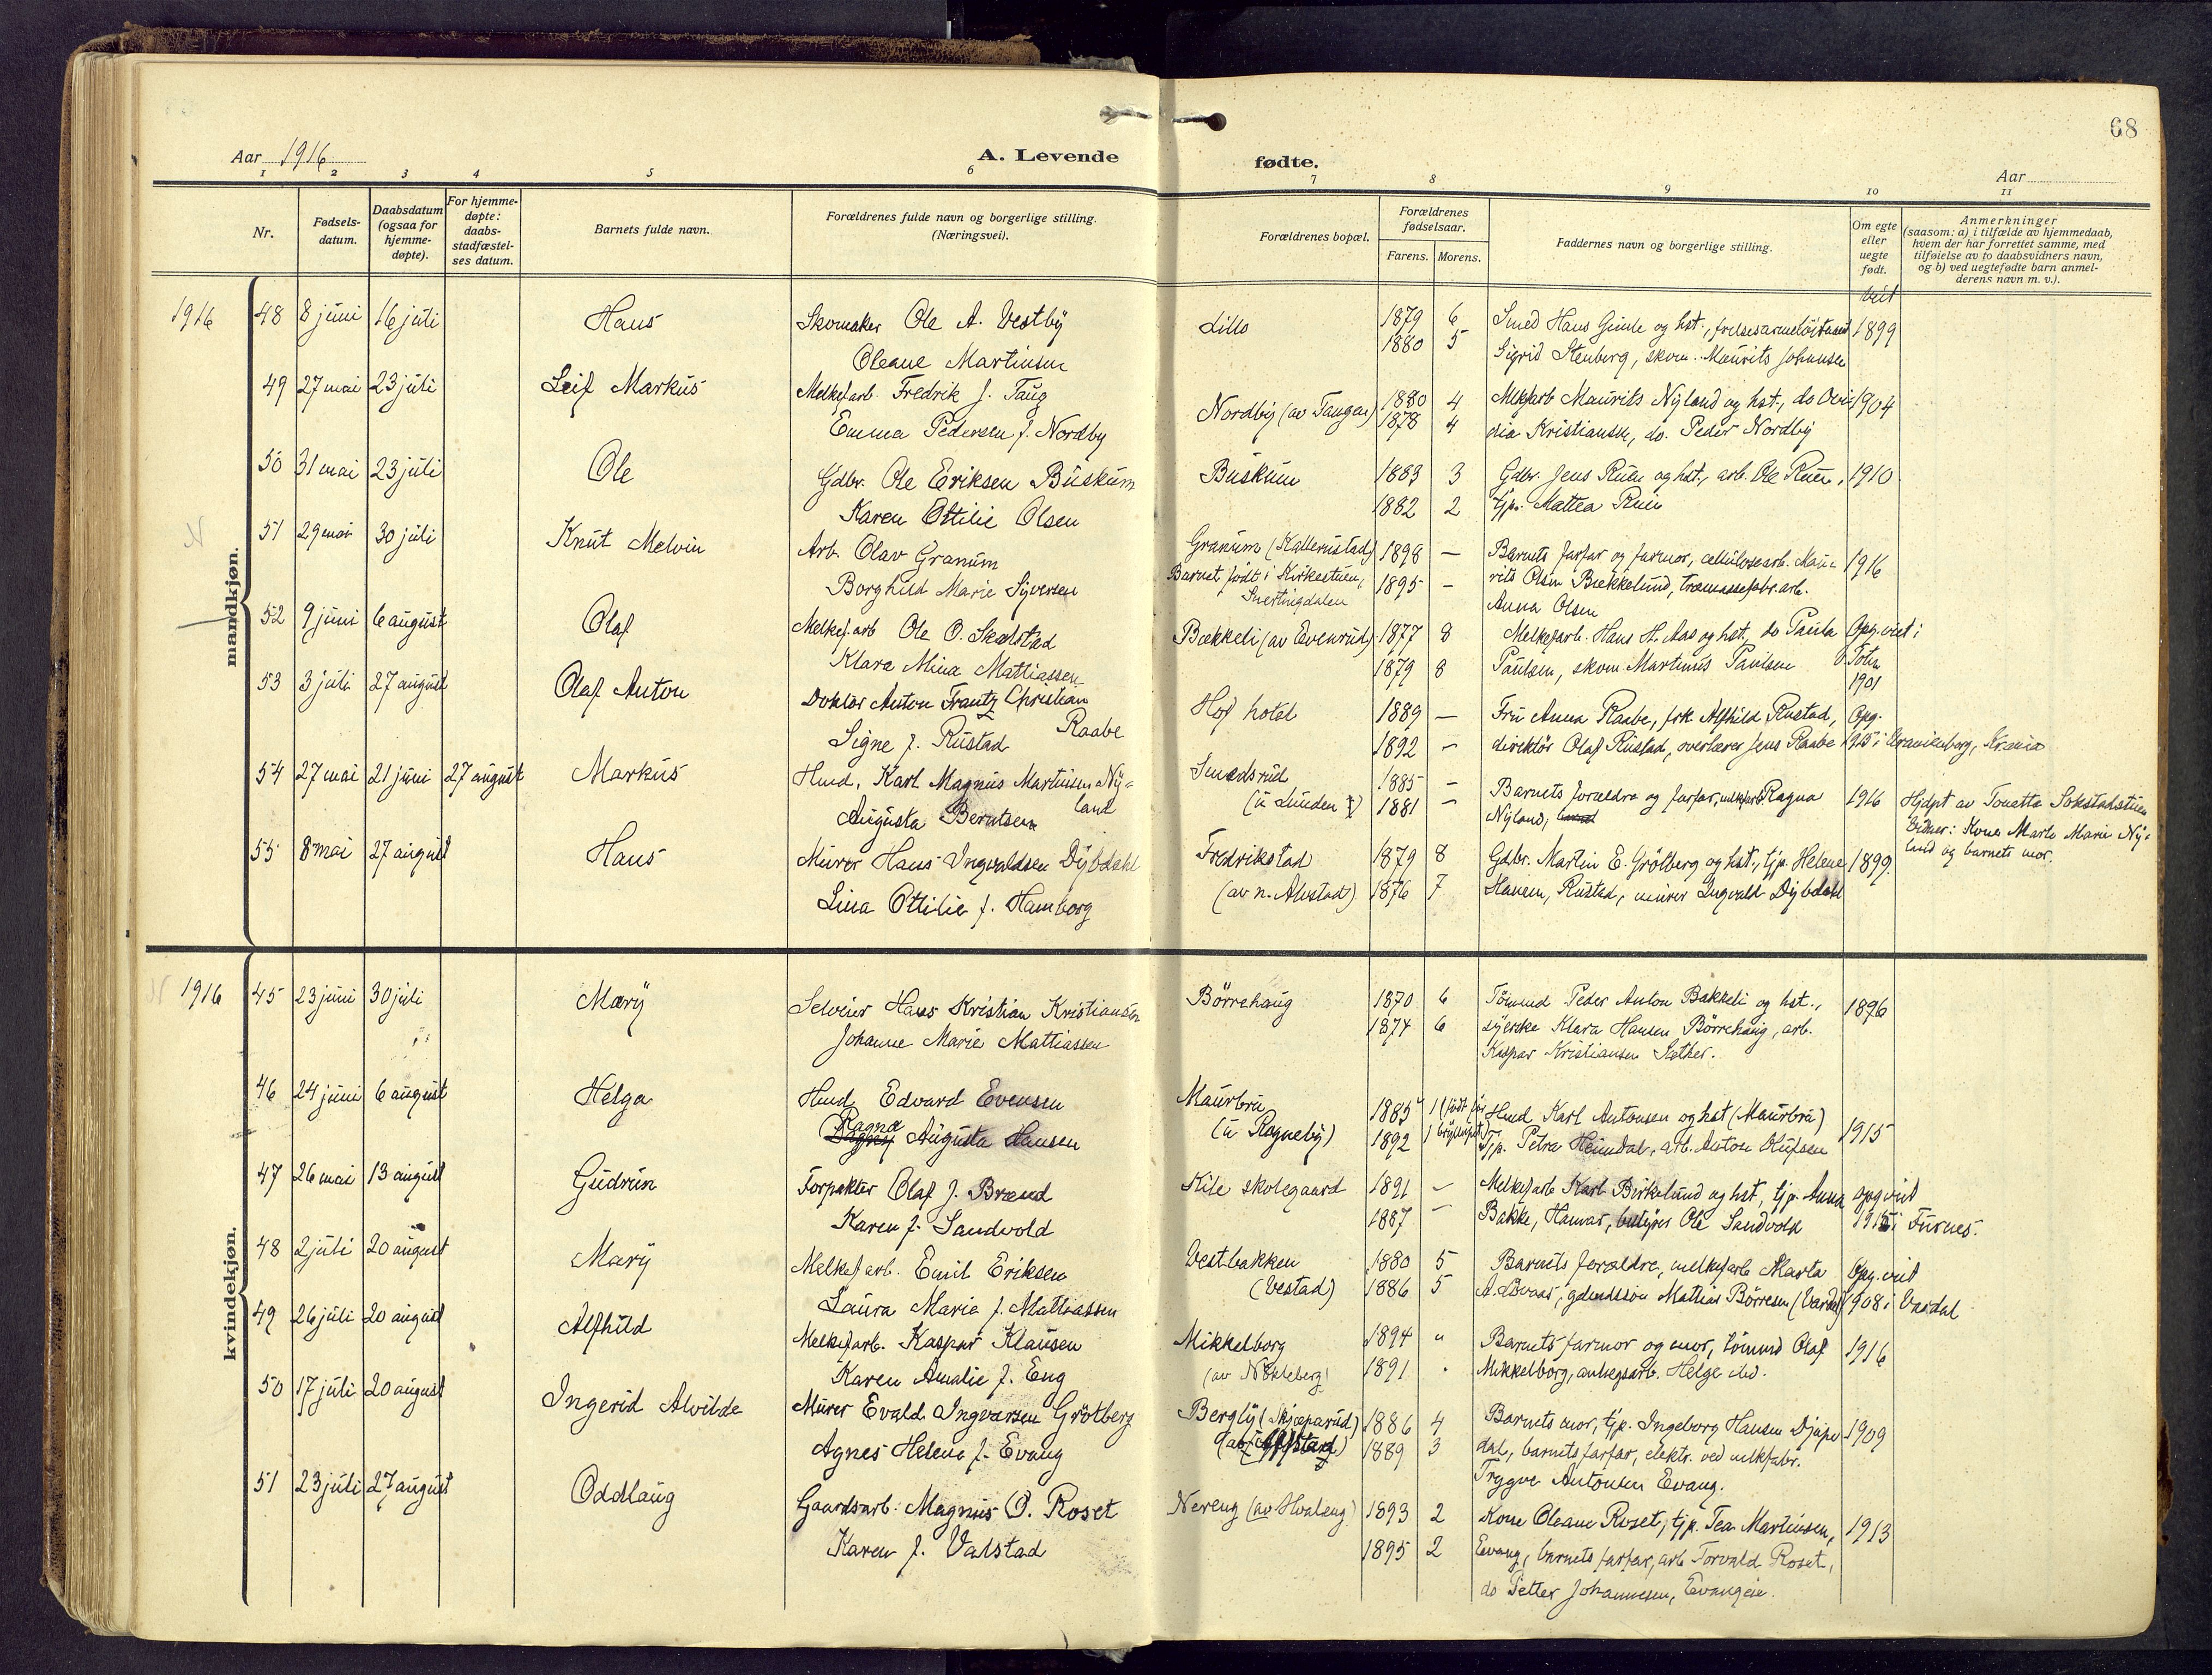 68
Aar 1916
A. Levende
fødte.
Aar
1 2 3 4 5 6 7 8 9 10 11
Nr.
Fødsels-
datum.
Daabsdatum
(ogsaa for
hjemme-
døpte).
For hjemme-
døpte:
daabs-
stadfæstel-
ses datum.
Barnets fulde navn.
Forældrenes fulde navn og borgerlige stilling.
(Næringsvei).
Forældrenes bopæl.
Forældrenes
fødselsaar.
Farens. Morens.
Faddernes navn og borgerlige stilling.
Om egte
eller
uegte
født.
Anmerkninger
(saasom: a) i tilfælde av hjemmedaab,
hvem der har forrettet samme, med
tilføielse av to daabsvidners navn,
og b) ved uegtefødte barn anmel-
derens navn m. v.).
mandkjøn.
viet
1916 48 8 juni 16 juli Hans Skomaker Ole A. Vestby Lillo 1879 6 Smed Hans Gimle og hst., frelsesarmeløitnant 1899
Oleane Martinsen 1880 5 Sigrid Stenberg, skom. Maurits Johansen
49 27 mai 23 juli Leif Markus Melkef.arb. Fredrik J. Taug Nordby (av Taugen) 1880 4 Melkfarb Maurits Nyland og hst., do Ovi- 1904
Emma Pedersen f. Nordby 1878 4 dia Kristiansen, do. Peder Nordby
50 31 mai 23 juli Ole Gdbr. Ole Eriksen Buskum Buskum 1883 3 Gdbr. Jens Ruen og hst., arb. Ole Ruen, 1910
Karen Ottilie Olsen 1882 2 tjp. Mattea Ruen
51 29 mai 30 juli Knut Melvin Arb. Olav Granum Granum (Kallerustad) 1898 — Barnets farfar og farmor, cellulosearb. Mau- 1916
Borghild Marie Syversen Barnet født i Kirkestuen, 1895 - rits Olsen Bækkelund, træmassefabr.arb.
Snertingdalen Anna Olsen
52 9 juni 6 august Olaf Melkef.arb Ole O. Skalstad Bækkeli (av Evenrud) 1877 8 Melkefarb. Hans H. Aas og hst., do Paula Opg. viet i
Klara Mina Mattiassen 1879 8 Paulsen, skom Martinus Paulsen
1901
53 3 juli 27 august Olaf Anton Doktor Anton Frantz Christian Hof hotel 1889 — Fru Anna Raabe, frk Alfhild Rustad, Opg.
Raabe
Signe f. Rustad 1892 - direktør Olaf Rustad, overlærer Jens Raabe 1915 i Uranienborg, Krania
54 27 mai 21 juni 27 august Markus Hmd. Karl Magnus Martinsen Ny- Smedsrud 1885 - Barnets forældre og farfar, melkfarb Ragna 1916 Hjdpt av Tonetta Sokstadstuen
land
Augusta Berntsen (u Lunden) 1881 - Nyland, Vidner: Kona Marte Marie Ny-
land og barnets mor.
55 8 mai 27 august Hans Murer Hans Ingvaldsen Dybdahl Fredrikstad 1879 8 Gdbr. Martin E. Grøtberg og hst., tjp. Helene 1899
Lina Ottilie f. Hamborg (av n. Alvstad) 1876 7 Hansen, Rustad, murer Ingvald Dybdahl
kvindekjøn.
1916 45 23 juni 30 juli Mary Selveier Hans Kristian Kristiansen Børrehaug 1870 6 Tømmd Peder Anton Bakkeli og hst., 1896
Johanne Marie Mattiassen 1874 6 syerske Klara Hansen Børrehaug, arb.
Kaspar Kristiansen Sæther.
46 24 juni 6 august Helga Hmd Edvard Evensen Maurbru 1885 1 (født før Hmd Karl Antonsen og hst (Maurbru) 1915
Ragna
Augusta Hansen (u Rogneby) 1892 1 bryllupet) Tjp. Petra Heimdal, arb. Anton Olufsen
47 26 mai 13 august Gudrun Forpakter Olaf J. Brænd Kile skolegaard 1891 - Melkefarb Karl Birkelund og hst, tjp. Anna opg viet
Karen f. Sandvold 1887 - Bakke, Hamar, bestyrer Ole Sandvold i Furnes.
48 2 juli 20 august Mary Melkef arb. Emil Eriksen Vestbakken 1880 5 Barnets forældre, melkefarb Marta Opg. viet
Laura Marie f. Mattiassen (Vestad) 1886 5 gdmdssøn Mattias Børresen (Vardal) 1908 i Vardal
49 26 juli 20 august Alfhild Melkefarb. Kaspar Klausen Mikkelborg 1894 " Barnets farmor og mor, tømmd Olaf 1916
Karen Amalie f. Eng (av Nøkleberg) 1891 " Mikkelborg, anlegsarb. Helge ibd.
50 17 juli 20 august Ingerid Alvilde Murer Evald Ingvarsen Grøtberg Bergly (Skjeparud) 1886 4 Barnets mor, tjp. Ingeborg Hansen Djupe- 1909
Agnes Helene f. Evang 1889 3 dal, barnets farfar, elektr. ved melkfabr.
Trygve Antonsen Evang.
51 23 juli 27 august Oddlaug Gaardsarb. Magnus O. Roset Nereng (av Hvaleng) 1893 2 Kone Oleane Roset, tjp. Tea Martinsen, 1913
Karen f. Valstad 1895 2 Evang, barnets farfar, arb Torvald Roset,
do Petter Johannesen, Evangeie.